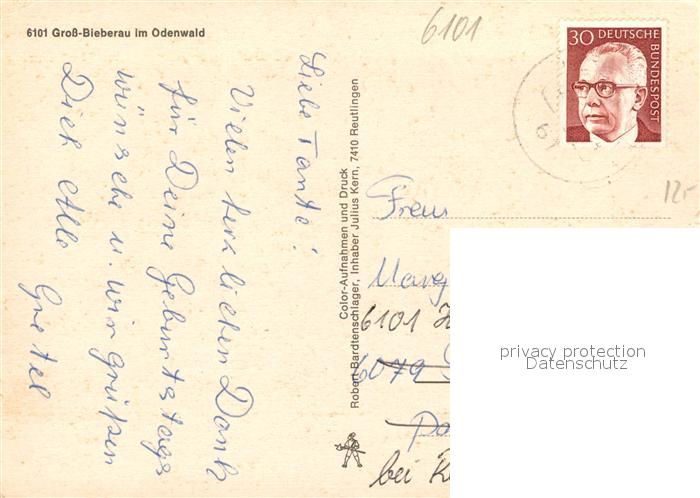 6101 Groß-Bieberau im Odenwald
6101
30 DEUTSCHE
BUNDESPOST
12,-
Liebe Tante!
Vielen herzlichen Dank
für Deine Geburtstags
wünsche u. wir grüßen
Dich Alle
Gretel
Color-Aufnahmen und Druck
Robert Bardtenschlager, Inhaber Julius Kern, 7410 Reutlingen
Frau
Marg
6101
6079
bei
privacy protection
Datenschutz